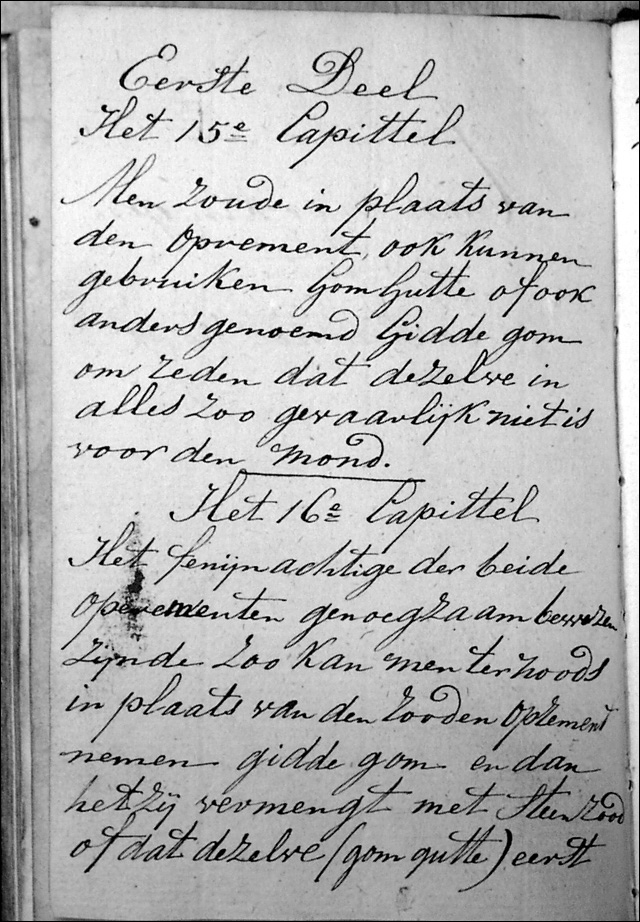 Eerste Deel
Het 15e Capittel
Men zoude in plaats van
den Oprement, ook kunnen
gebruiken Gom Gutte of ook
anders genoemd Gidde gom
om reden dat dezelve in
alles zoo gevaarlijk niet is
voor den mond.
Het 16e Capittel
Het fenijnachtige der beide
operementen genoegzaam bewezen
zijnde zoo kan men ter noods
in plaats van den rooden Oprement
nemen gidde gom en dan
het zij vermengt met Steenrood
of dat dezelve (gom gutte) eerst